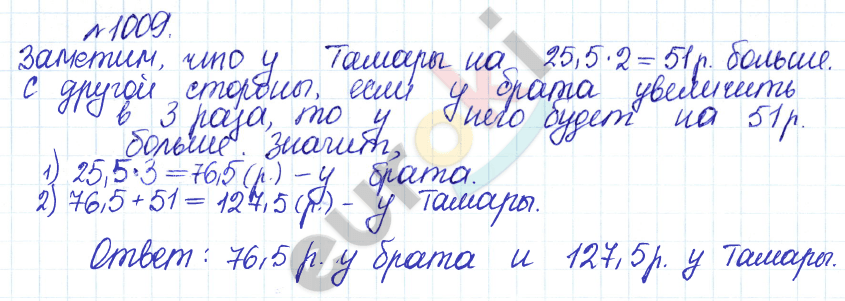 №1009.
Заметим, что у Тамары на 25,5·2=51р. больше.
С другой стороны, если у брата увеличить
в 3 раза, то у него будет на 51р.
больше. Значит,
1) 25,5·3=76,5(р.) – у брата.
2) 76,5+51=127,5(р.) – у Тамары.
Ответ: 76,5 р. у брата и 127,5р. у Тамары.
euroki